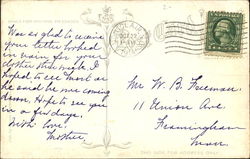 Was so glad to receive
your letter looked
in vain for your
clothes this night. I
hoped to see most as
he said he was coming
down. Hope to see you
in a few days.
With love.
Mother
OCT 22
Mr W. B. Freeman
11 Union Ave
Framingham
Mass